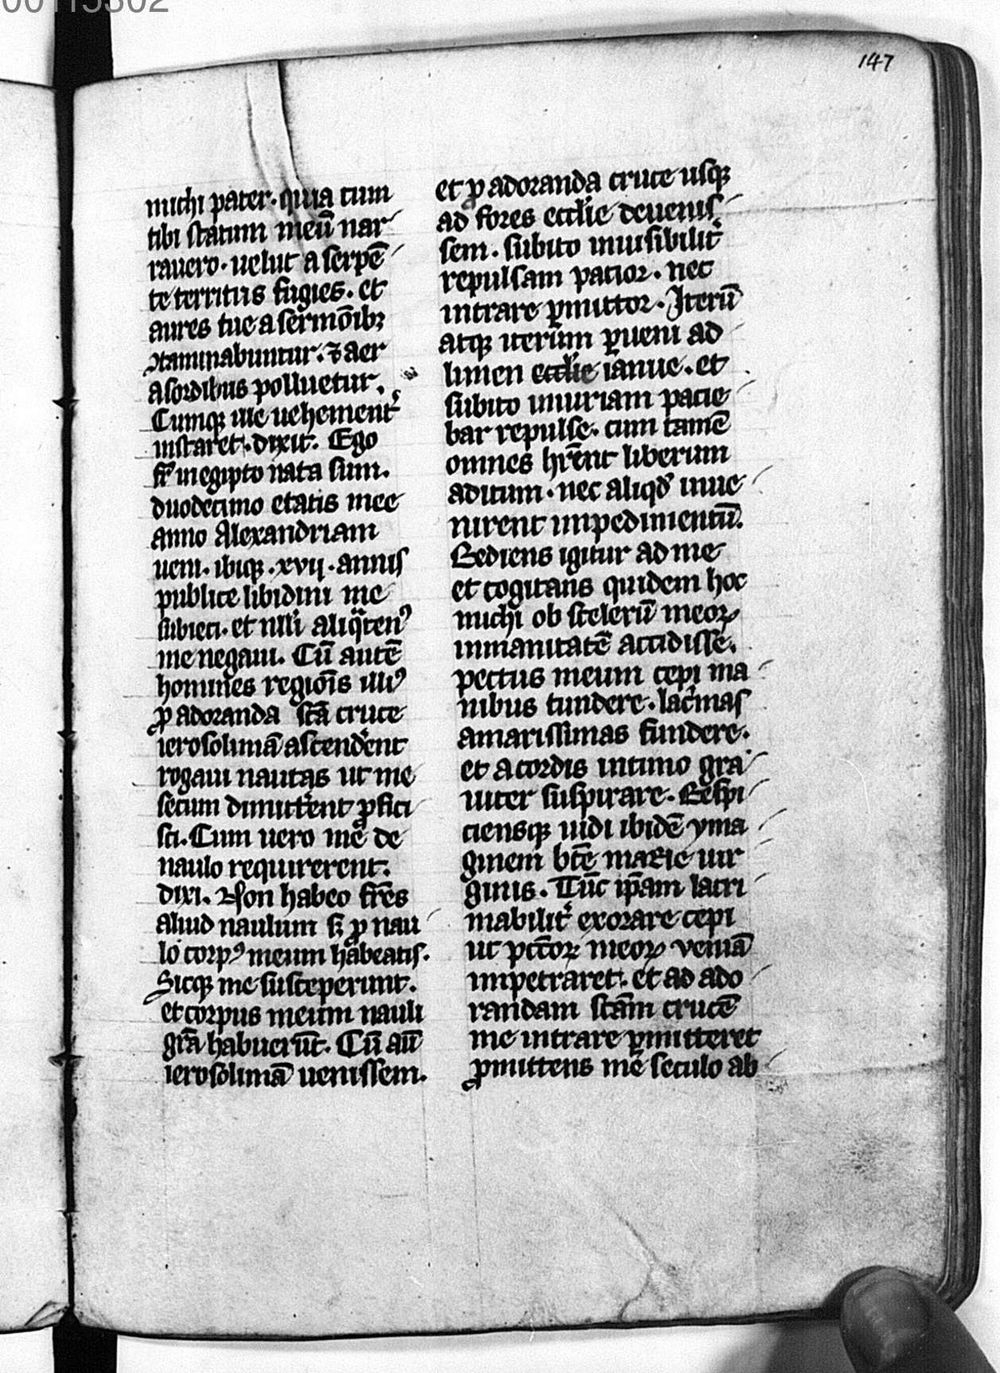 00115302
147
michi pater. quia cum
tibi statum meū nar
rauero. uelut a serpē
te territus fugies. et
aures tue a sermōibꝫ
ꝯtaminabuntur. ⁊ aer
a sordibus polluetur.
Cumqꝫ ille uehement͛
instaret. dixit. Ego
fr̄ in egipto nata sum.
duodecimo etatis mee
anno Alexandriam
ueni. ibiqꝫ .xvij. annis
publice libidini me
subieci. et nlli aliq̄tenꝰ
me negaui. Cū autē
homines regiōis illiꝰ
ꝓ adoranda scā cruce
ierosolimā ascend͛ent
rogaui nautas ut me
secum dimitt͛ent ꝓfici
sci. Cum uero me de
naulo requirerent.
dixi. Non habeo fr̄es
aliud naulum sꝫ ꝓ nau
lo corpꝰ meum habeatis.
Sicqꝫ me susceperunt.
et corpus meum nauli
grā habuerūt. Cū aū
ierosolimā uenissem.
et ꝓ adoranda cruce usqꝫ
ad fores eccl̄ie deuenis
sem. subito inuisibilit͛
repulsam patior. nec
intrare ꝑmittor. Iterū
atqꝫ iterum ꝑueni ad
limen eccl̄ie ianue. et
subito iniuriam patie
bar repulse. cum tamē
omnes hr̄ent liberum
aditum. nec aliqd̄ inue
nirent impedimentū.
Rediens igitur ad me
et cogitans quidem hoc
michi ob scelerū meoꝝ
inmanitatē accidisse.
pectus meum cepi ma
nibus tundere. lac͛mas
amarissimas fundere.
et a cordis intimo gra
uiter suspirare. Respi
ciensqꝫ uidi ibidē yma
ginem btē marie uir
ginis. Tūc ip̄am lacri
mabilit͛ exorare cepi
ut pctōꝝ meoꝝ ueniā
impetraret. et ad ado
randam scām crucē
me intrare ꝑmitteret
ꝓmittens me seculo ab